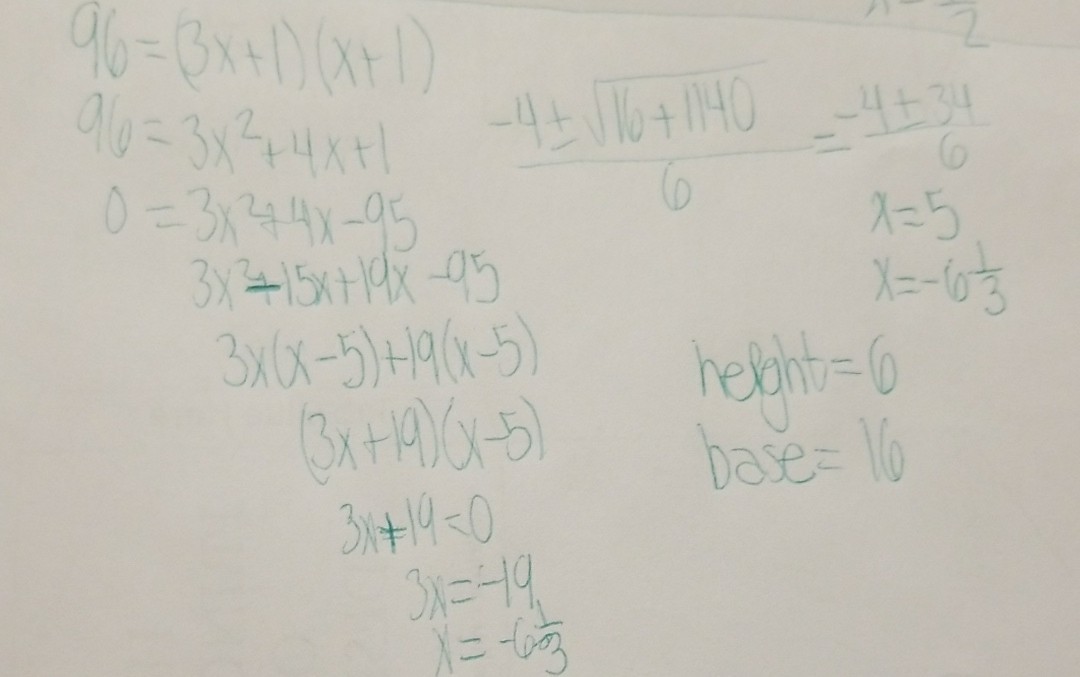 96=(3x+1)(x+1)
96=3x²+4x+1
0=3x²+4x-95
3x²-15x+19x-95
3x(x-5)+19(x-5)
(3x+19)(x-5)
3x+19=0
3x=-19
x=-6 1/3
2
-4±√16+1140 / 6 = -4±34 / 6
x=5
x=-6 1/3
height=6
base=16